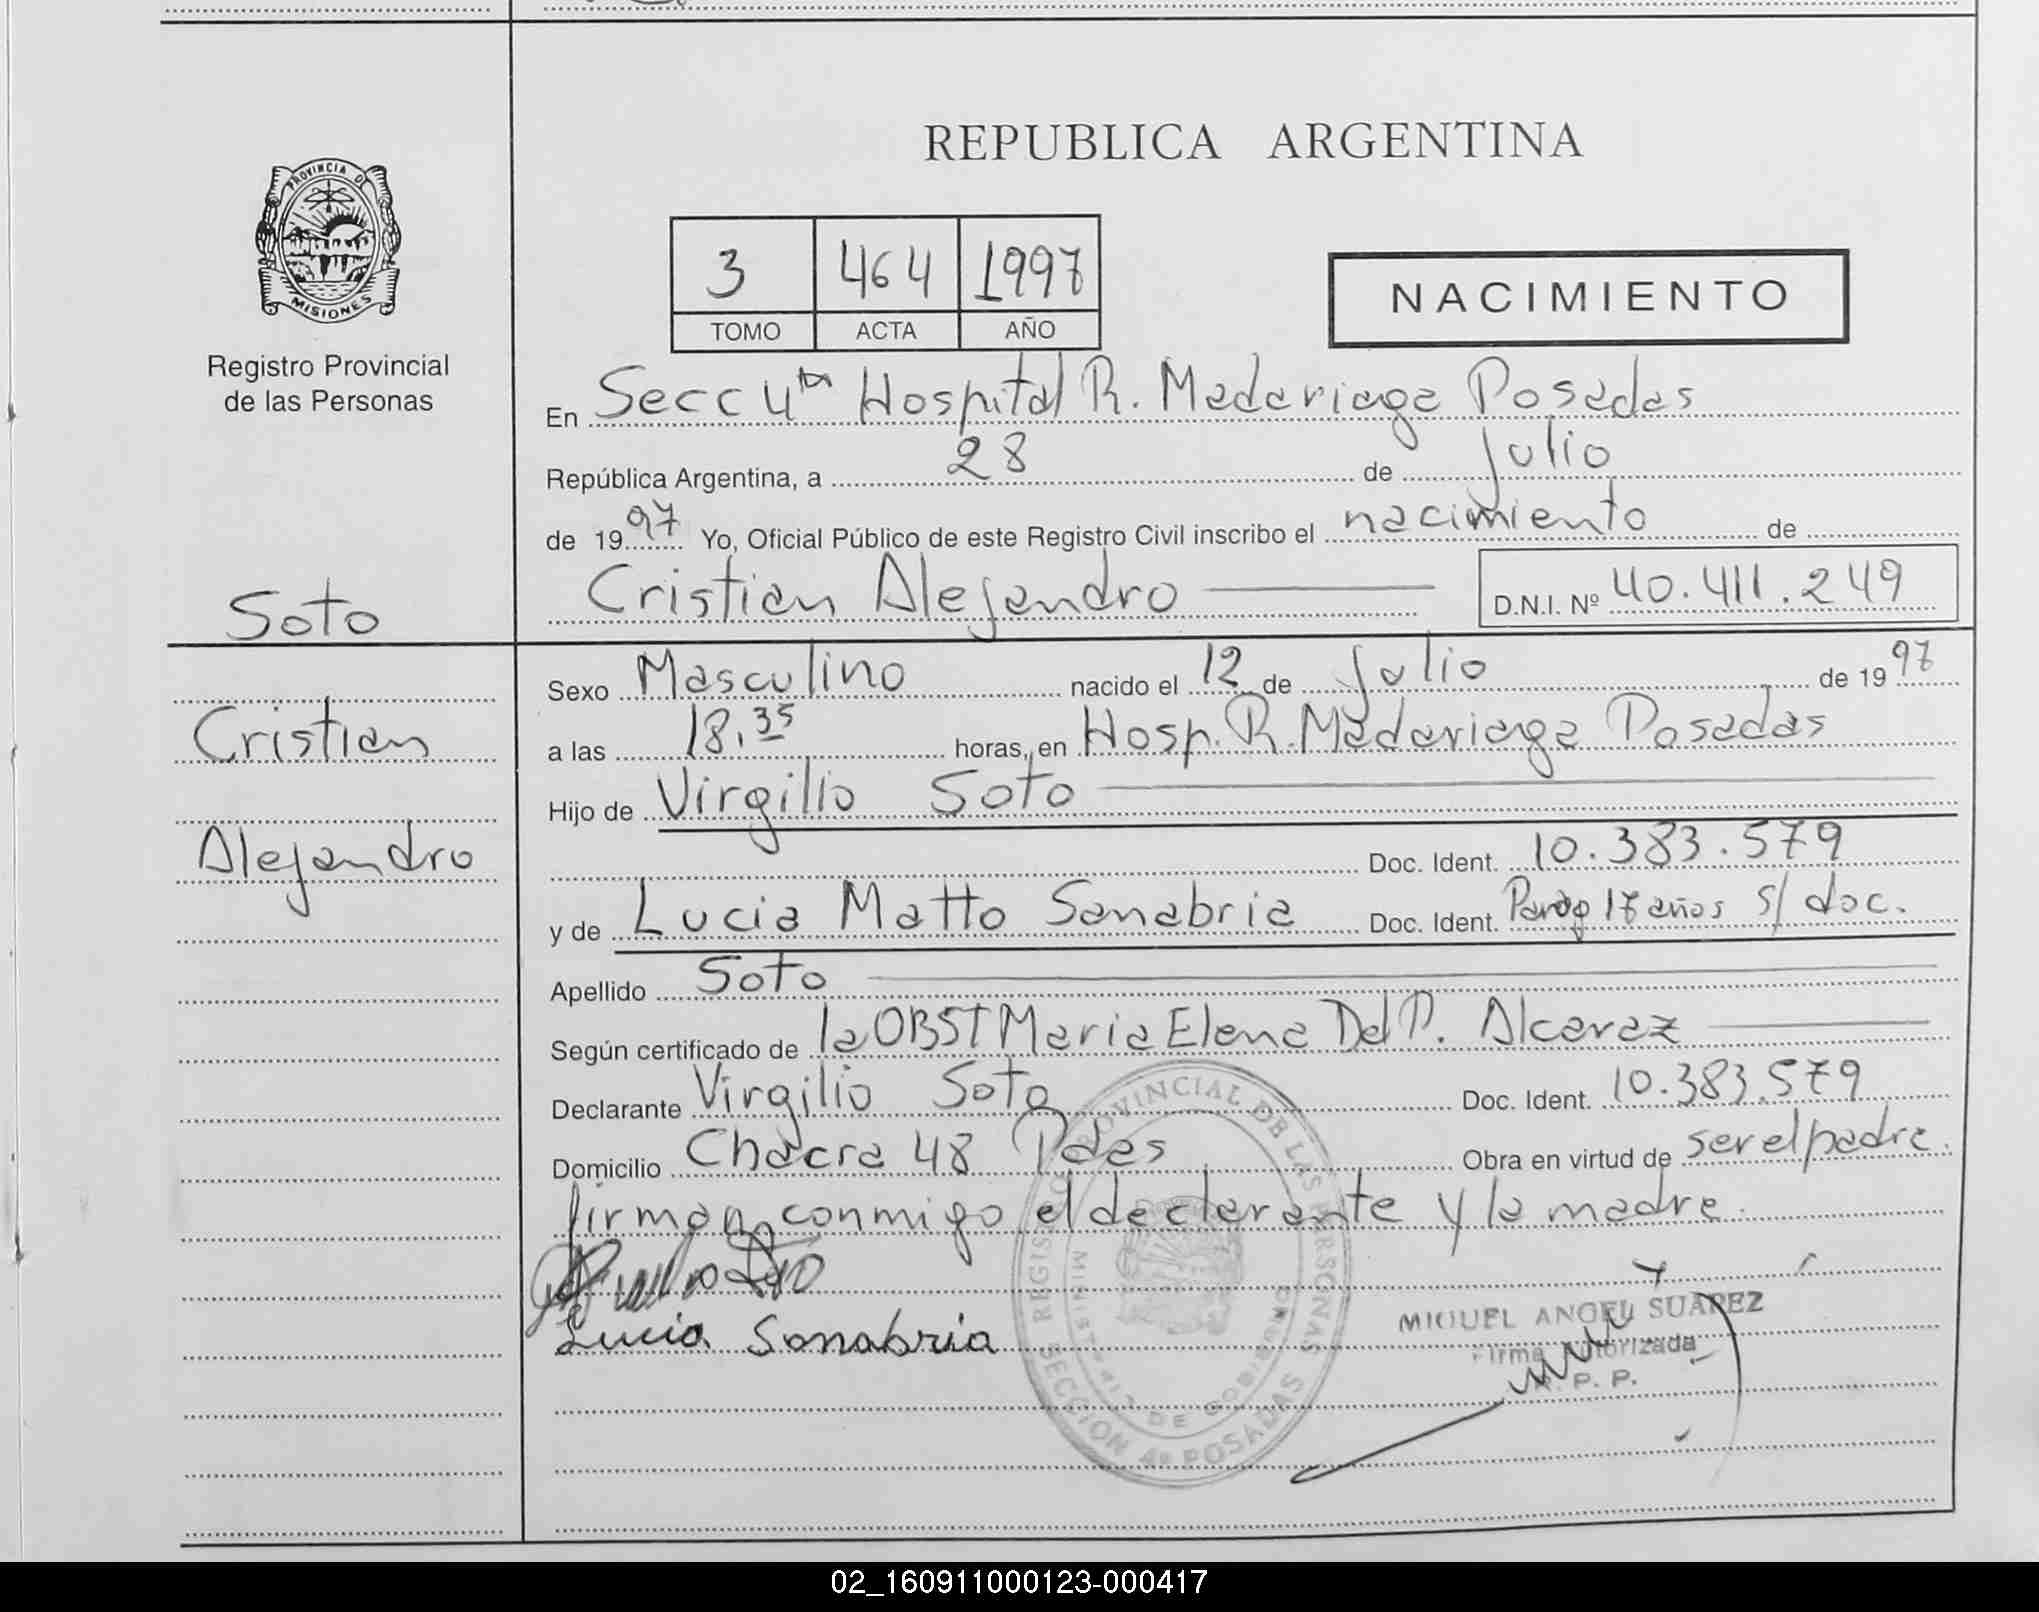 REPUBLICA ARGENTINA
PROVINCIA DE
MISIONES
Registro Provincial
de las Personas
3 464 1997
TOMO ACTA AÑO
NACIMIENTO
En Secc 4ta Hospital R. Madariaga Posadas
República Argentina, a 28 de julio
de 1997 Yo, Oficial Público de este Registro Civil inscribo el nacimiento de
Cristian Alejandro D.N.I. Nº 40.411.249
Soto
Cristian
Alejandro
Sexo Masculino nacido el 12 de Julio de 1997
a las 18.35 horas, en Hosp. R. Madariaga Posadas
Hijo de Virgilio Soto
Doc. Ident. 10.383.579
y de Lucia Matto Sanabria Doc. Ident. 17 años s/ doc.
Apellido Soto
Según certificado de la OBST Maria Elena Del P. Alcaraz
Declarante Virgilio Soto Doc. Ident. 10.383.579
Domicilio Chacra 48 Pdas Obra en virtud de ser el padre.
firman conmigo el declarante y la madre.
Lucia Sanabria
REGISTRO PROVINCIAL DE LAS PERSONAS
MINISTERIO DE GOBIERNO
SECCION 4º POSADAS
MIGUEL ANGEL SUAREZ
Firma Autorizada
R. P. P.
02_160911000123-000417